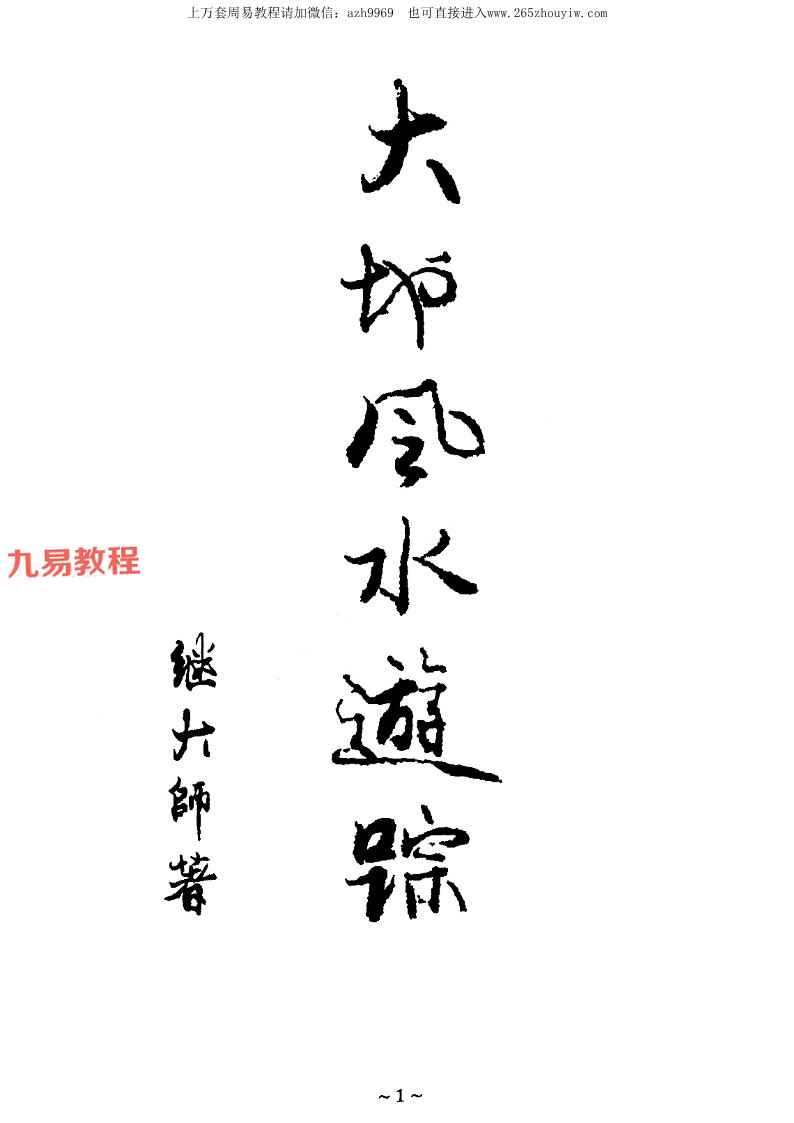 上万套周易教程请加微信：azh9969 也可直接进入www.265zhouyiw.com
大地風水遊踪
九易教程
继大師著
~1~